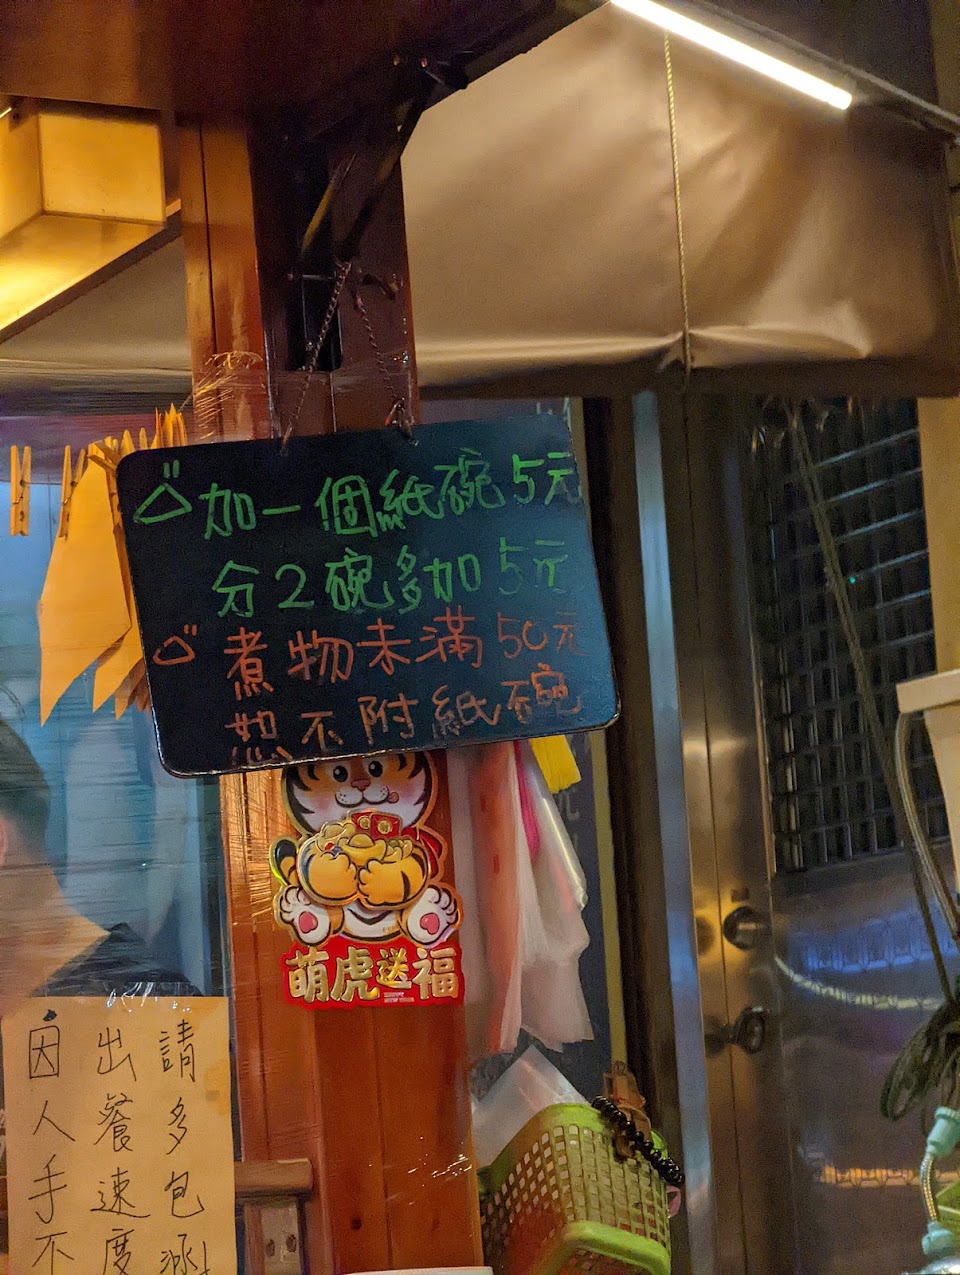 加一個紙碗5元
分2碗多加5元
煮物未滿50元
恕不附紙碗
萌虎送福
請多包涵!
出餐速度
因人手不